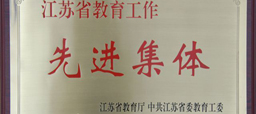 江苏省教育工作
先进集体
江苏省教育厅 中共江苏省委教育工委